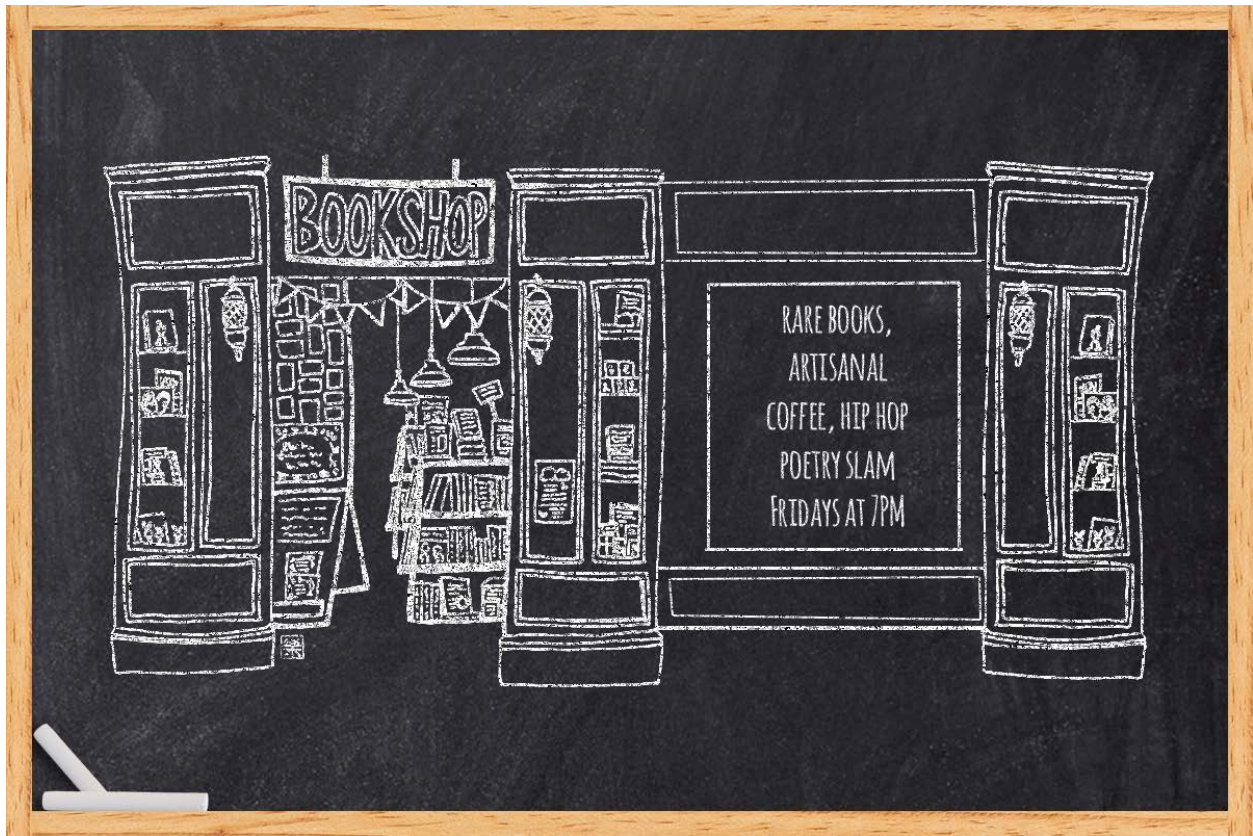 BOOKSHOP
RARE BOOKS,
ARTISANAL
COFFEE, HIP HOP
POETRY SLAM
FRIDAYS AT 7PM